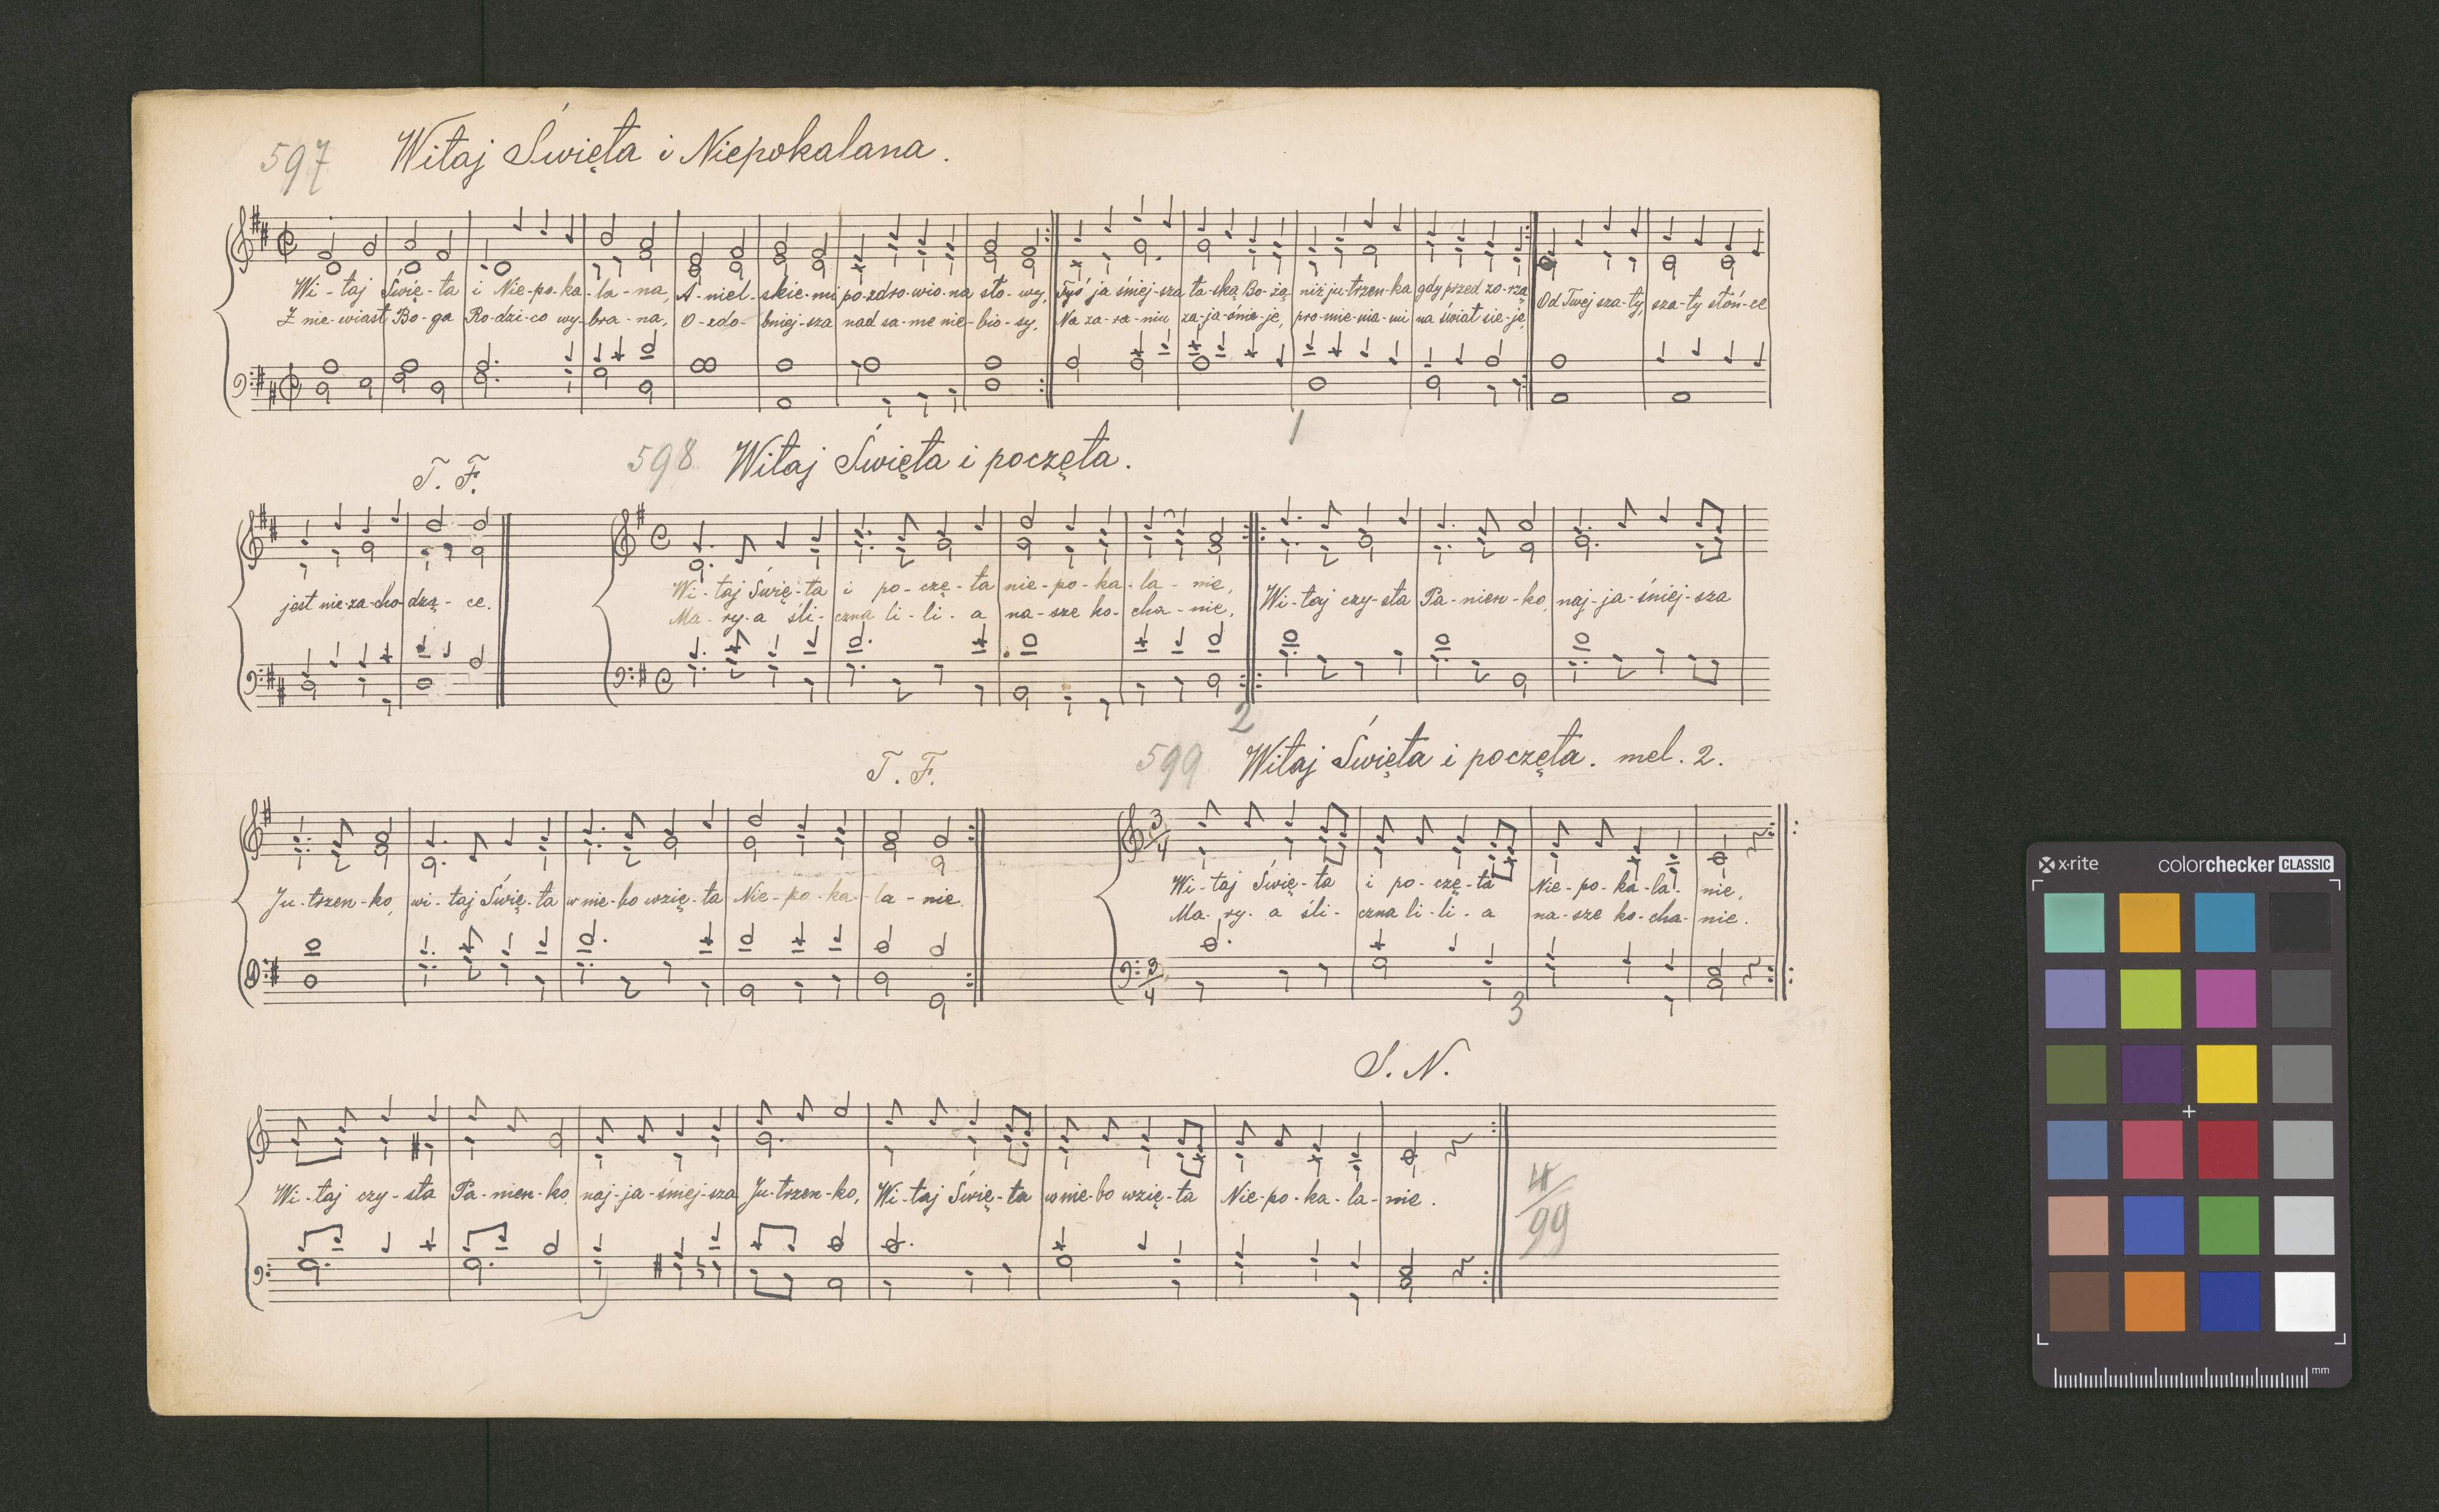 597 Witaj Święta i Niepokalana.
Wi - taj Świę - ta i Nie - po - ka - la - na, A - niel - skie - mi po - zdro - wio - na sło - wy, Tyś ja śniej - sza ła - ską Bo - żą niż ju - trzen - ka gdy przed zo - rzą Od Twej sza - ty, sza - ty słoń - ce
Z nie - wiast Bo - ga Ro - dzi - co wy - bra - na, O - zdo - bniej - sza nad sa - me nie - bio - sy, Na za - ra - niu za - ja - śnie - je, pro - mie - nia - mi na świat sie - je,
1
T. F. 598 Witaj Święta i poczęta.
jest nie - za - cho - dzą - ce.
Wi - taj Świę - ta i po - czę - ta nie - po - ka - la - nie, Wi - taj czy - sta Pa - nien - ko, naj - ja - śniej - sza
Ma - ry - a śli - czna li - li - a na - sze ko - cha - nie,
2
T. F. 599 Witaj Święta i poczęta. mel. 2.
3/4
Ju - trzen - ko, wi - taj Świę - ta w nie - bo wzię - ta Nie - po - ka - la - nie.
Wi - taj Świę - ta i po - czę - ta Nie - po - ka - la - nie,
Ma - ry - a śli - czna li - li - a na - sze ko - cha - nie.
3/4
3
S. N.
Wi - taj czy - sta Pa - nien - ko, naj - ja - śniej - sza Ju - trzen - ko, Wi - taj Świę - ta w nie - bo wzię - ta Nie - po - ka - la - nie.
4/99
x·rite colorchecker CLASSIC
mm